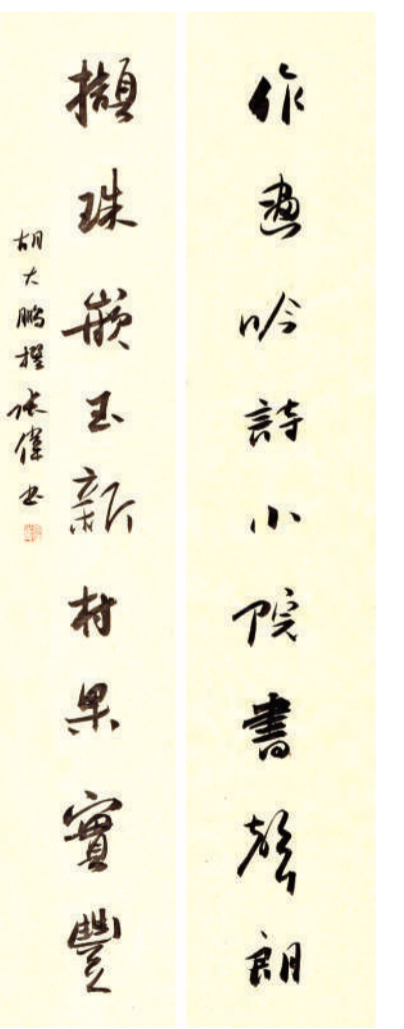 作畫吟詩小院書聲朗
擷珠嵌玉新村果實豐
胡大鵬撰張偉書